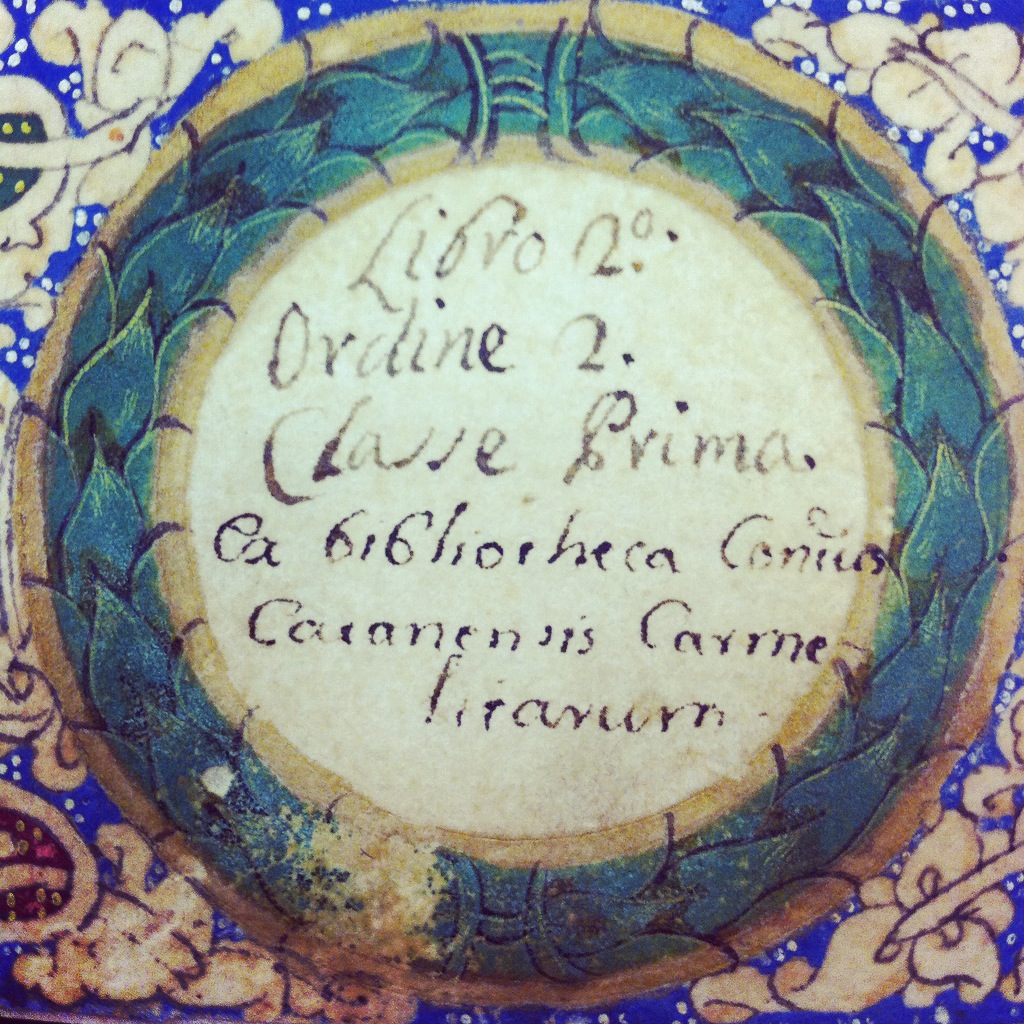 Libro 2º.
Ordine 2.
Classe Prima.
Ex bibliotheca Conũus
Catanensis Carme-
litarum.